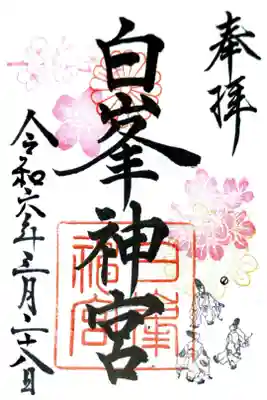 奉拝
白峯神宮
令和六年三月二十八日
白峯
神宮